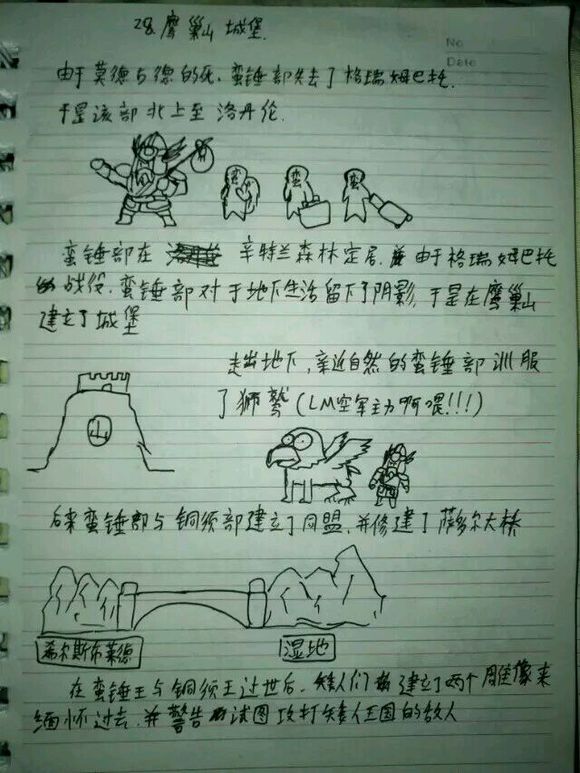 28.鹰巢山城堡.
No
Date
由于莫德古德的死,蛮锤部失去了格瑞姆巴托.
于是该部北上至洛丹伦.
蛮
蛮
蛮
蛮锤部在辛特兰森林定居.由于格瑞姆巴托
战役,蛮锤部对于地下生活留下了阴影,于是在鹰巢山
建立了城堡
走出地下,亲近自然的蛮锤部训服
了狮鹫(LM空军主力啊喂!!!)
山
后来蛮锤部与铜须部建立了同盟,并修建了萨多尔大桥
希尔斯布莱德
湿地
在蛮锤王与铜须王过世后,矮人们建立了两个雕像来
缅怀过去,并警告试图攻打矮人王国的敌人